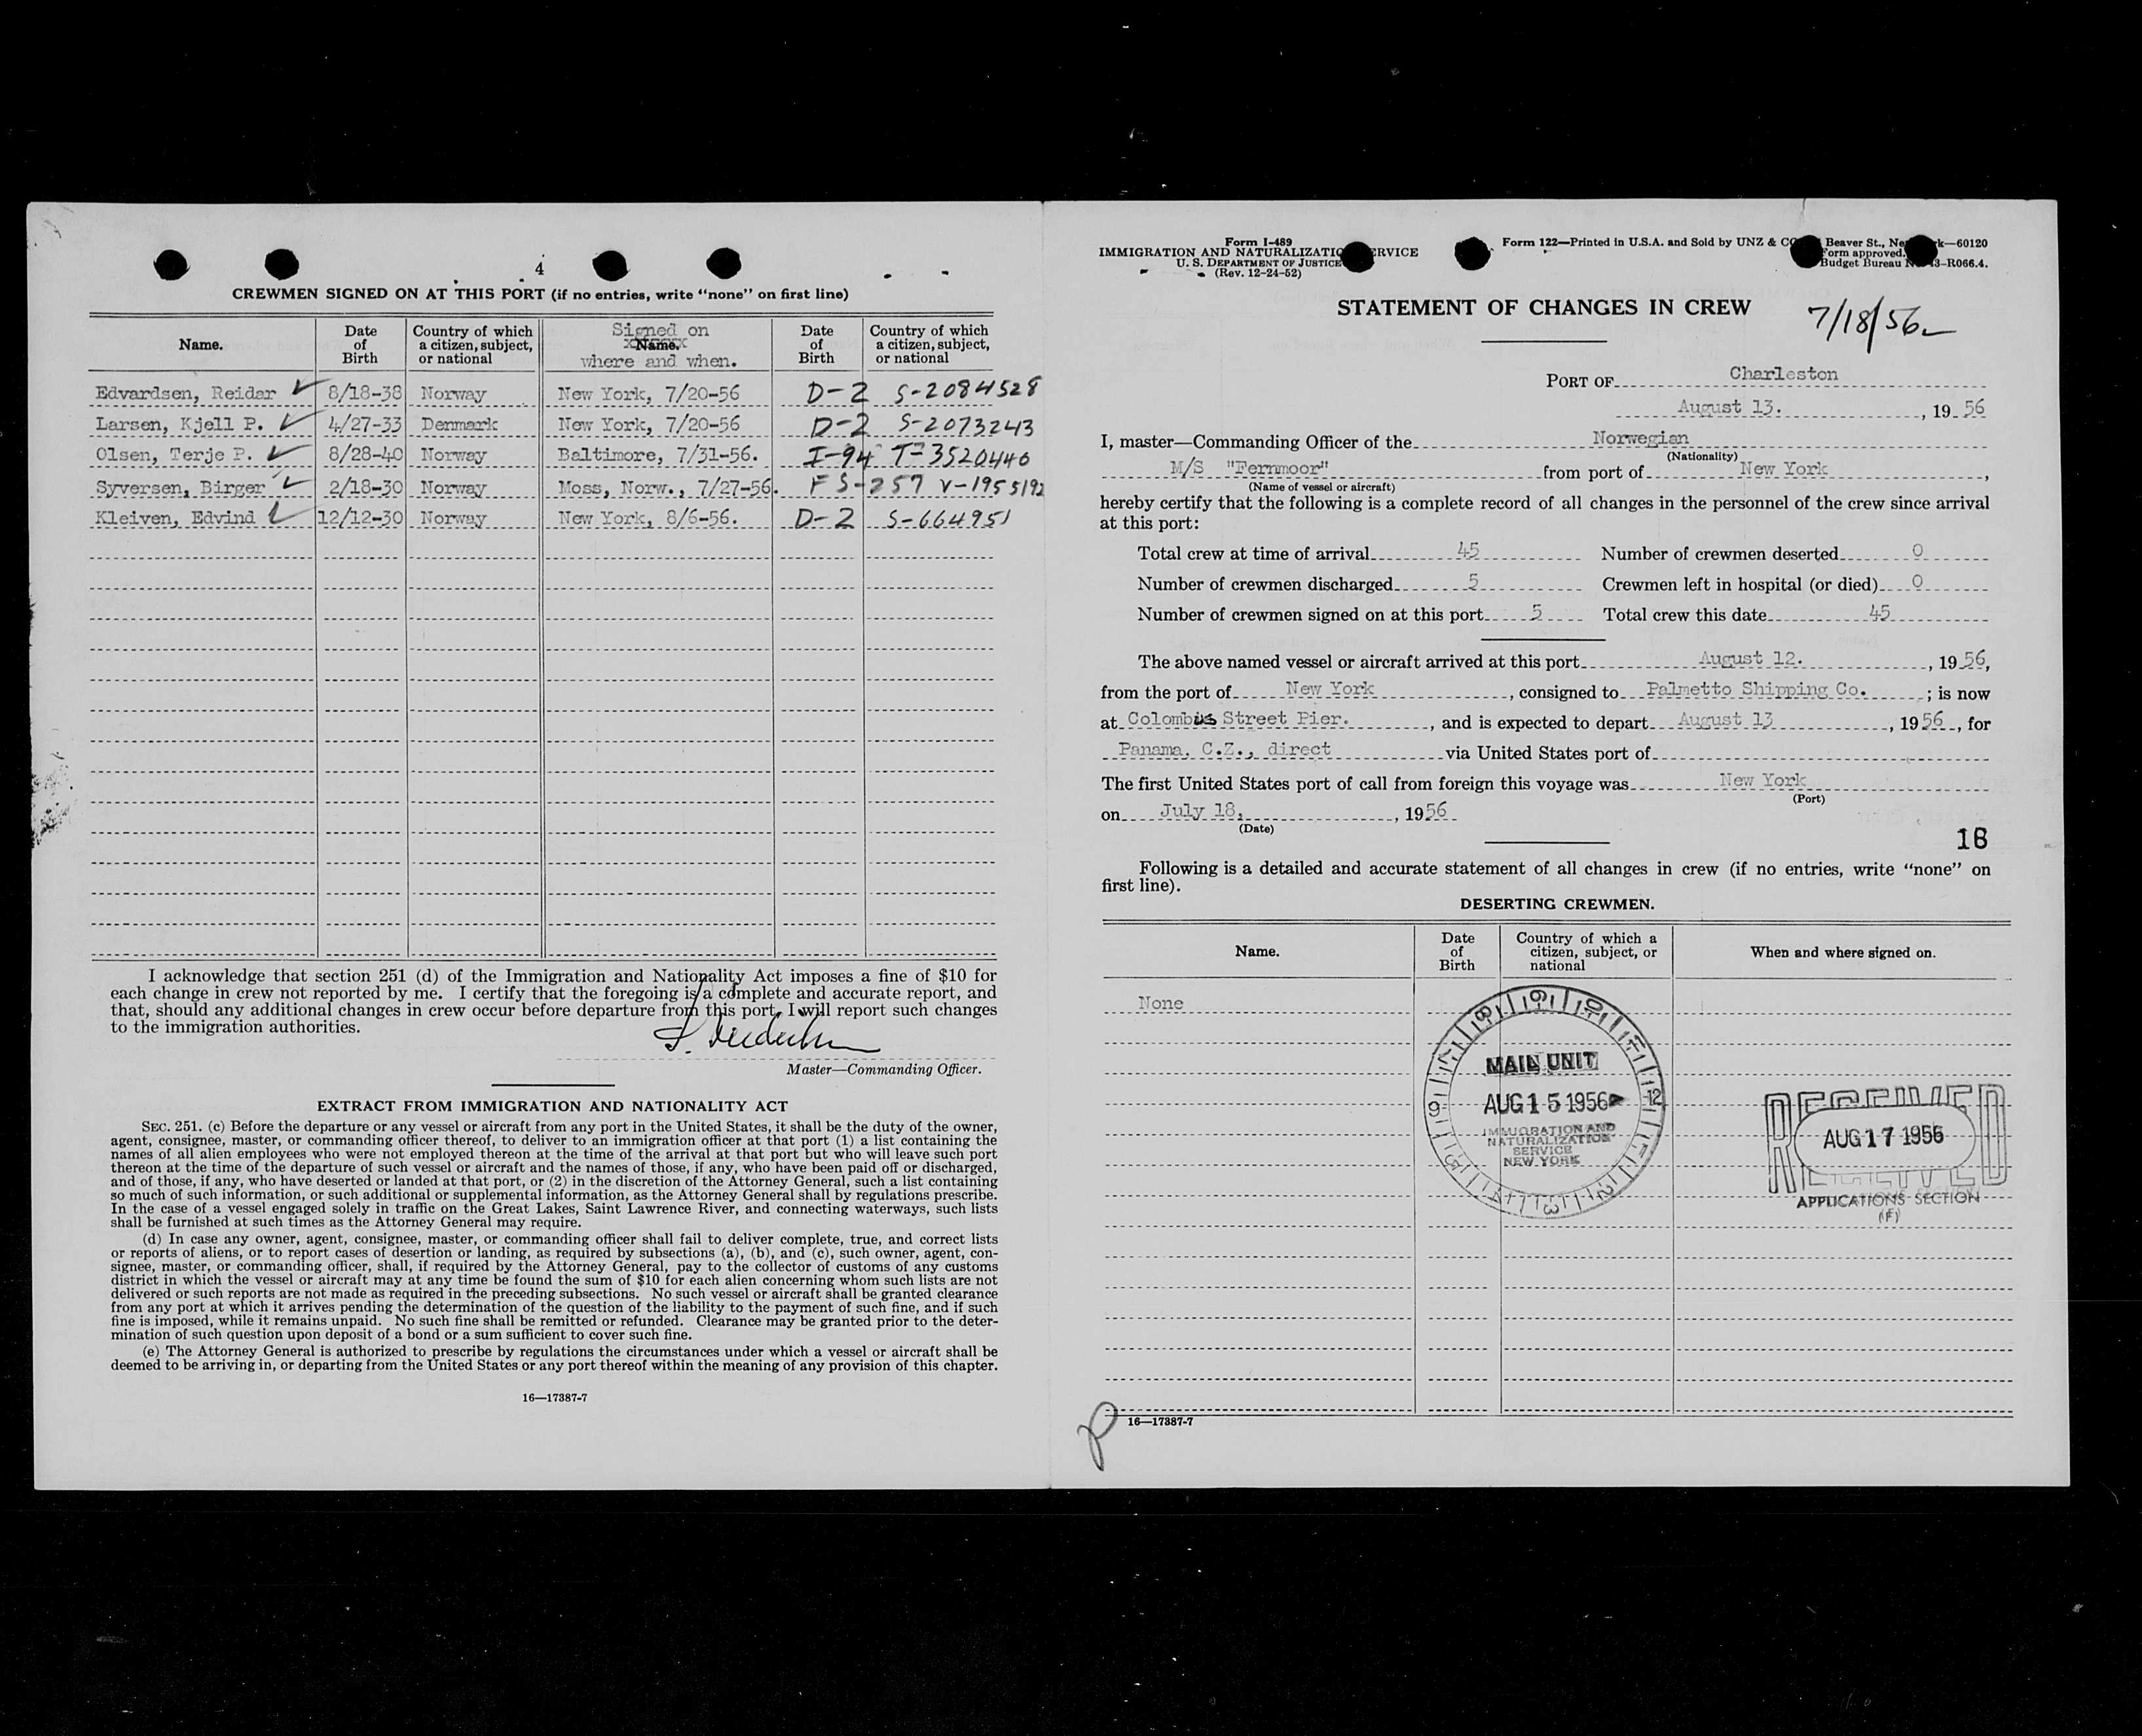 4
CREWMEN SIGNED ON AT THIS PORT (if no entries, write “none” on first line)
Name. Date of Birth Country of which a citizen, subject, or national Signed on Name. where and when. Date of Birth Country of which a citizen, subject, or national
Edvardsen, Reidar 8/18-38 Norway New York, 7/20-56 D-2 S-2084528
Larsen, Kjell P. 4/27-33 Denmark New York, 7/20-56 D-2 S-2073243
Olsen, Terje P. 8/28-40 Norway Baltimore, 7/31-56. I-94 T-3520440
Syversen, Birger 2/18-30 Norway Moss, Norw., 7/27-56. FS-257 V-1955192
Kleiven, Edvind 12/12-30 Norway New York, 8/6-56. D-2 S-664951
I acknowledge that section 251 (d) of the Immigration and Nationality Act imposes a fine of $10 for
each change in crew not reported by me. I certify that the foregoing is a complete and accurate report, and
that, should any additional changes in crew occur before departure from this port, I will report such changes
to the immigration authorities.
Master—Commanding Officer.
EXTRACT FROM IMMIGRATION AND NATIONALITY ACT
SEC. 251. (c) Before the departure or any vessel or aircraft from any port in the United States, it shall be the duty of the owner,
agent, consignee, master, or commanding officer thereof, to deliver to an immigration officer at that port (1) a list containing the
names of all alien employees who were not employed thereon at the time of the arrival at that port but who will leave such port
thereon at the time of the departure of such vessel or aircraft and the names of those, if any, who have been paid off or discharged,
and of those, if any, who have deserted or landed at that port, or (2) in the discretion of the Attorney General, such a list containing
so much of such information, or such additional or supplemental information, as the Attorney General shall by regulations prescribe.
In the case of a vessel engaged solely in traffic on the Great Lakes, Saint Lawrence River, and connecting waterways, such lists
shall be furnished at such times as the Attorney General may require.
(d) In case any owner, agent, consignee, master, or commanding officer shall fail to deliver complete, true, and correct lists
or reports of aliens, or to report cases of desertion or landing, as required by subsections (a), (b), and (c), such owner, agent, con-
signee, master, or commanding officer, shall, if required by the Attorney General, pay to the collector of customs of any customs
district in which the vessel or aircraft may at any time be found the sum of $10 for each alien concerning whom such lists are not
delivered or such reports are not made as required in the preceding subsections. No such vessel or aircraft shall be granted clearance
from any port at which it arrives pending the determination of the question of the liability to the payment of such fine, and if such
fine is imposed, while it remains unpaid. No such fine shall be remitted or refunded. Clearance may be granted prior to the deter-
mination of such question upon deposit of a bond or a sum sufficient to cover such fine.
(e) The Attorney General is authorized to prescribe by regulations the circumstances under which a vessel or aircraft shall be
deemed to be arriving in, or departing from the United States or any port thereof within the meaning of any provision of this chapter.
16—17387-7
Form I-489
IMMIGRATION AND NATURALIZATION SERVICE
U. S. DEPARTMENT OF JUSTICE
(Rev. 12-24-52)
Form 122—Printed in U.S.A. and Sold by UNZ & CO Beaver St., New York—60120
Form approved.
Budget Bureau No. 43-R066.4.
STATEMENT OF CHANGES IN CREW
7/18/56
PORT OF Charleston
August 13. , 19 56
I, master—Commanding Officer of the Norwegian
(Nationality)
M/S "Fernmoor" from port of New York ,
(Name of vessel or aircraft)
hereby certify that the following is a complete record of all changes in the personnel of the crew since arrival
at this port:
Total crew at time of arrival 45 Number of crewmen deserted 0
Number of crewmen discharged 5 Crewmen left in hospital (or died) 0
Number of crewmen signed on at this port 5 Total crew this date 45
The above named vessel or aircraft arrived at this port August 12. , 19 56,
from the port of New York , consigned to Palmetto Shipping Co. ; is now
at Colombus Street Pier. , and is expected to depart August 13 , 19 56 , for
Panama. C.Z., direct via United States port of
The first United States port of call from foreign this voyage was New York
(Port)
on July 18, , 19 56
(Date)
18
Following is a detailed and accurate statement of all changes in crew (if no entries, write “none” on
first line).
DESERTING CREWMEN.
Name. Date of Birth Country of which a citizen, subject, or national When and where signed on.
None
MAIL UNIT
AUG 15 1956
IMMIGRATION AND
NATURALIZATION
SERVICE
NEW YORK
RECEIVED
AUG 17 1956
APPLICATIONS SECTION
(F)
16—17387-7